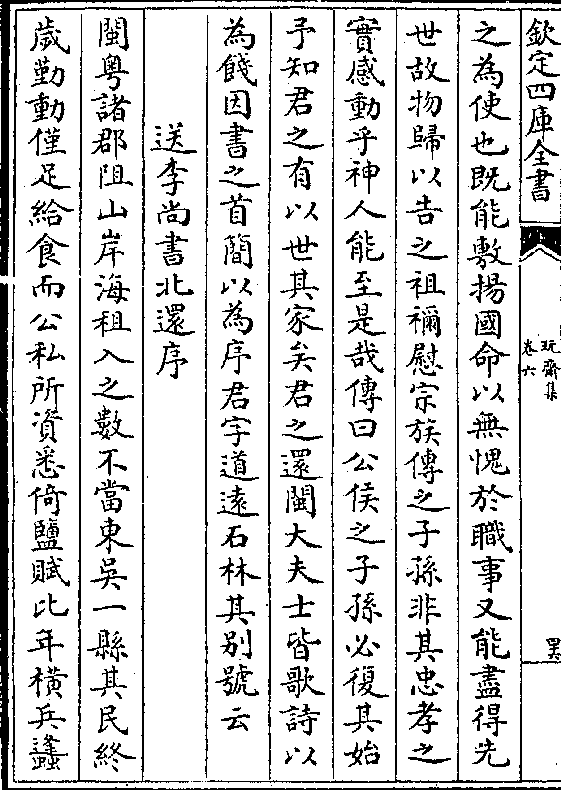 欽定四庫全書
玩齋集
卷六
之為使也既能敷揚國命以無愧於職事又能盡得先
世故物歸以告之祖禰慰宗族傳之子孫非其忠孝之
實感動乎神人能至是哉傳曰公侯之子孫必復其始
予知君之有以世其家矣君之還閩大夫士皆歌詩以
為餞因書之首簡以為序君字道遠石林其別號云
送李尚書北還序
閩粤諸郡阻山岸海租入之數不當東吳一縣其民終
歲勤動僅足給食而公私所資悉倚鹽賦比年横兵蠭